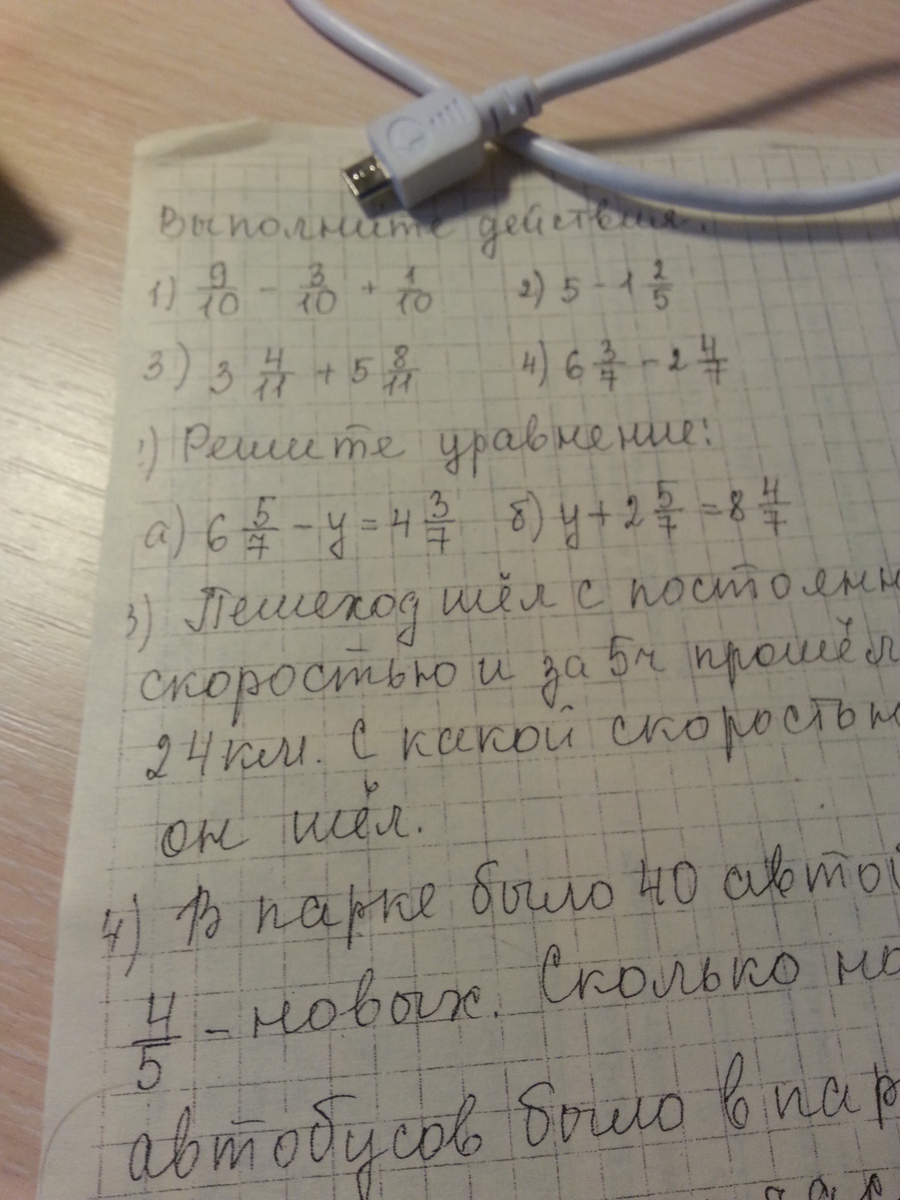 Выполните действия.
1) 9/10 - 3/10 + 1/10 2) 5 - 1 2/5
3) 3 4/11 + 5 8/11 4) 6 3/7 - 2 4/7
) Решите уравнение:
а) 6 5/7 - y = 4 3/7 б) y + 2 5/7 = 8 4/7
3) Пешеход шёл с постоянн
скоростью и за 5ч прошёл
24км. С какой скоростью
он шёл.
4) В парке было 40 авто
4/5 - новых. Сколько но
автобусов было в пар